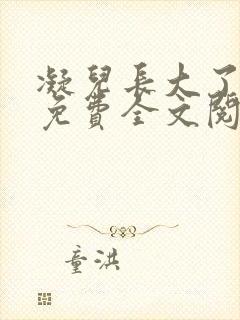 凝兒長大了
免費全文閱
童洪